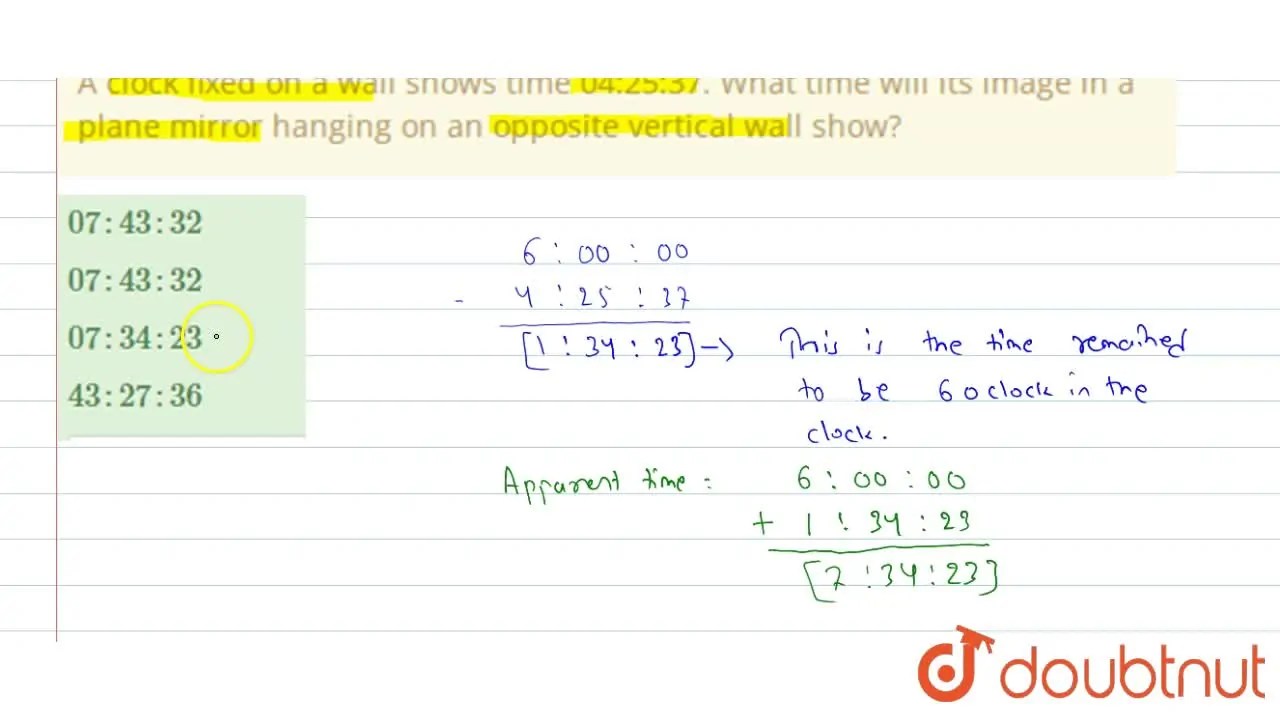 A clock fixed on a wall shows time 04:25:37. What time will its image in a
plane mirror hanging on an opposite vertical wall show?
07 : 43 : 32
07 : 43 : 32
07 : 34 : 23
43 : 27 : 36
6 : 00 : 00
- 4 : 25 : 37
[1 : 34 : 23] → This is the time remained
to be 6 o clock in the
clock.
Apparent time : 6 : 00 : 00
+ 1 : 34 : 23
[7 : 34 : 23]
doubtnut